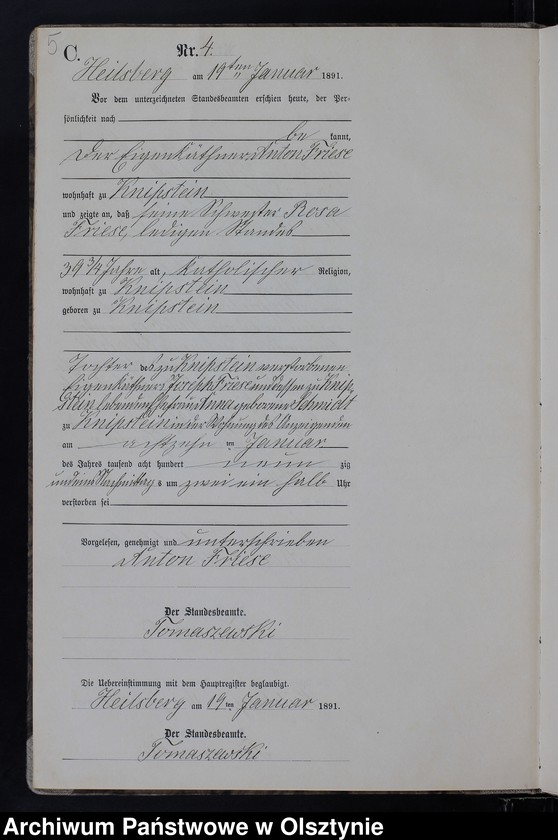 5
C.
Nr. 4.
Heilsberg am 19ten Januar 1891.
Vor dem unterzeichneten Standesbeamten erschien heute, der Per-
sönlichkeit nach
be kannt,
der Eigenkäthner Anton Friese
wohnhaft zu Knipstein
und zeigte an, daß seine Schwester Rosa
Friese, ledigen Standes
39 3/4 Jahre alt, katholischer Religion,
wohnhaft zu Knipstein
geboren zu Knipstein
Tochter des zu Knipstein verstorbenen
Eigenkäthners Joseph Friese und dessen zu Knip-
stein lebenden Ehefrau Anna geborene Schmidt
zu Knipstein in der Wohnung des Anzeigenden
am achtzehn ten Januar
des Jahres tausend acht hundert neun zig
und eins Nachmittag s um zwei ein halb Uhr
verstorben sei
Vorgelesen, genehmigt und unterschrieben
Anton Friese
Der Standesbeamte.
Tomaszewski
Die Uebereinstimmung mit dem Hauptregister beglaubigt.
Heilsberg am 19 ten Januar 1891.
Der Standesbeamte.
Tomaszewski
Archiwum Państwowe w Olsztynie